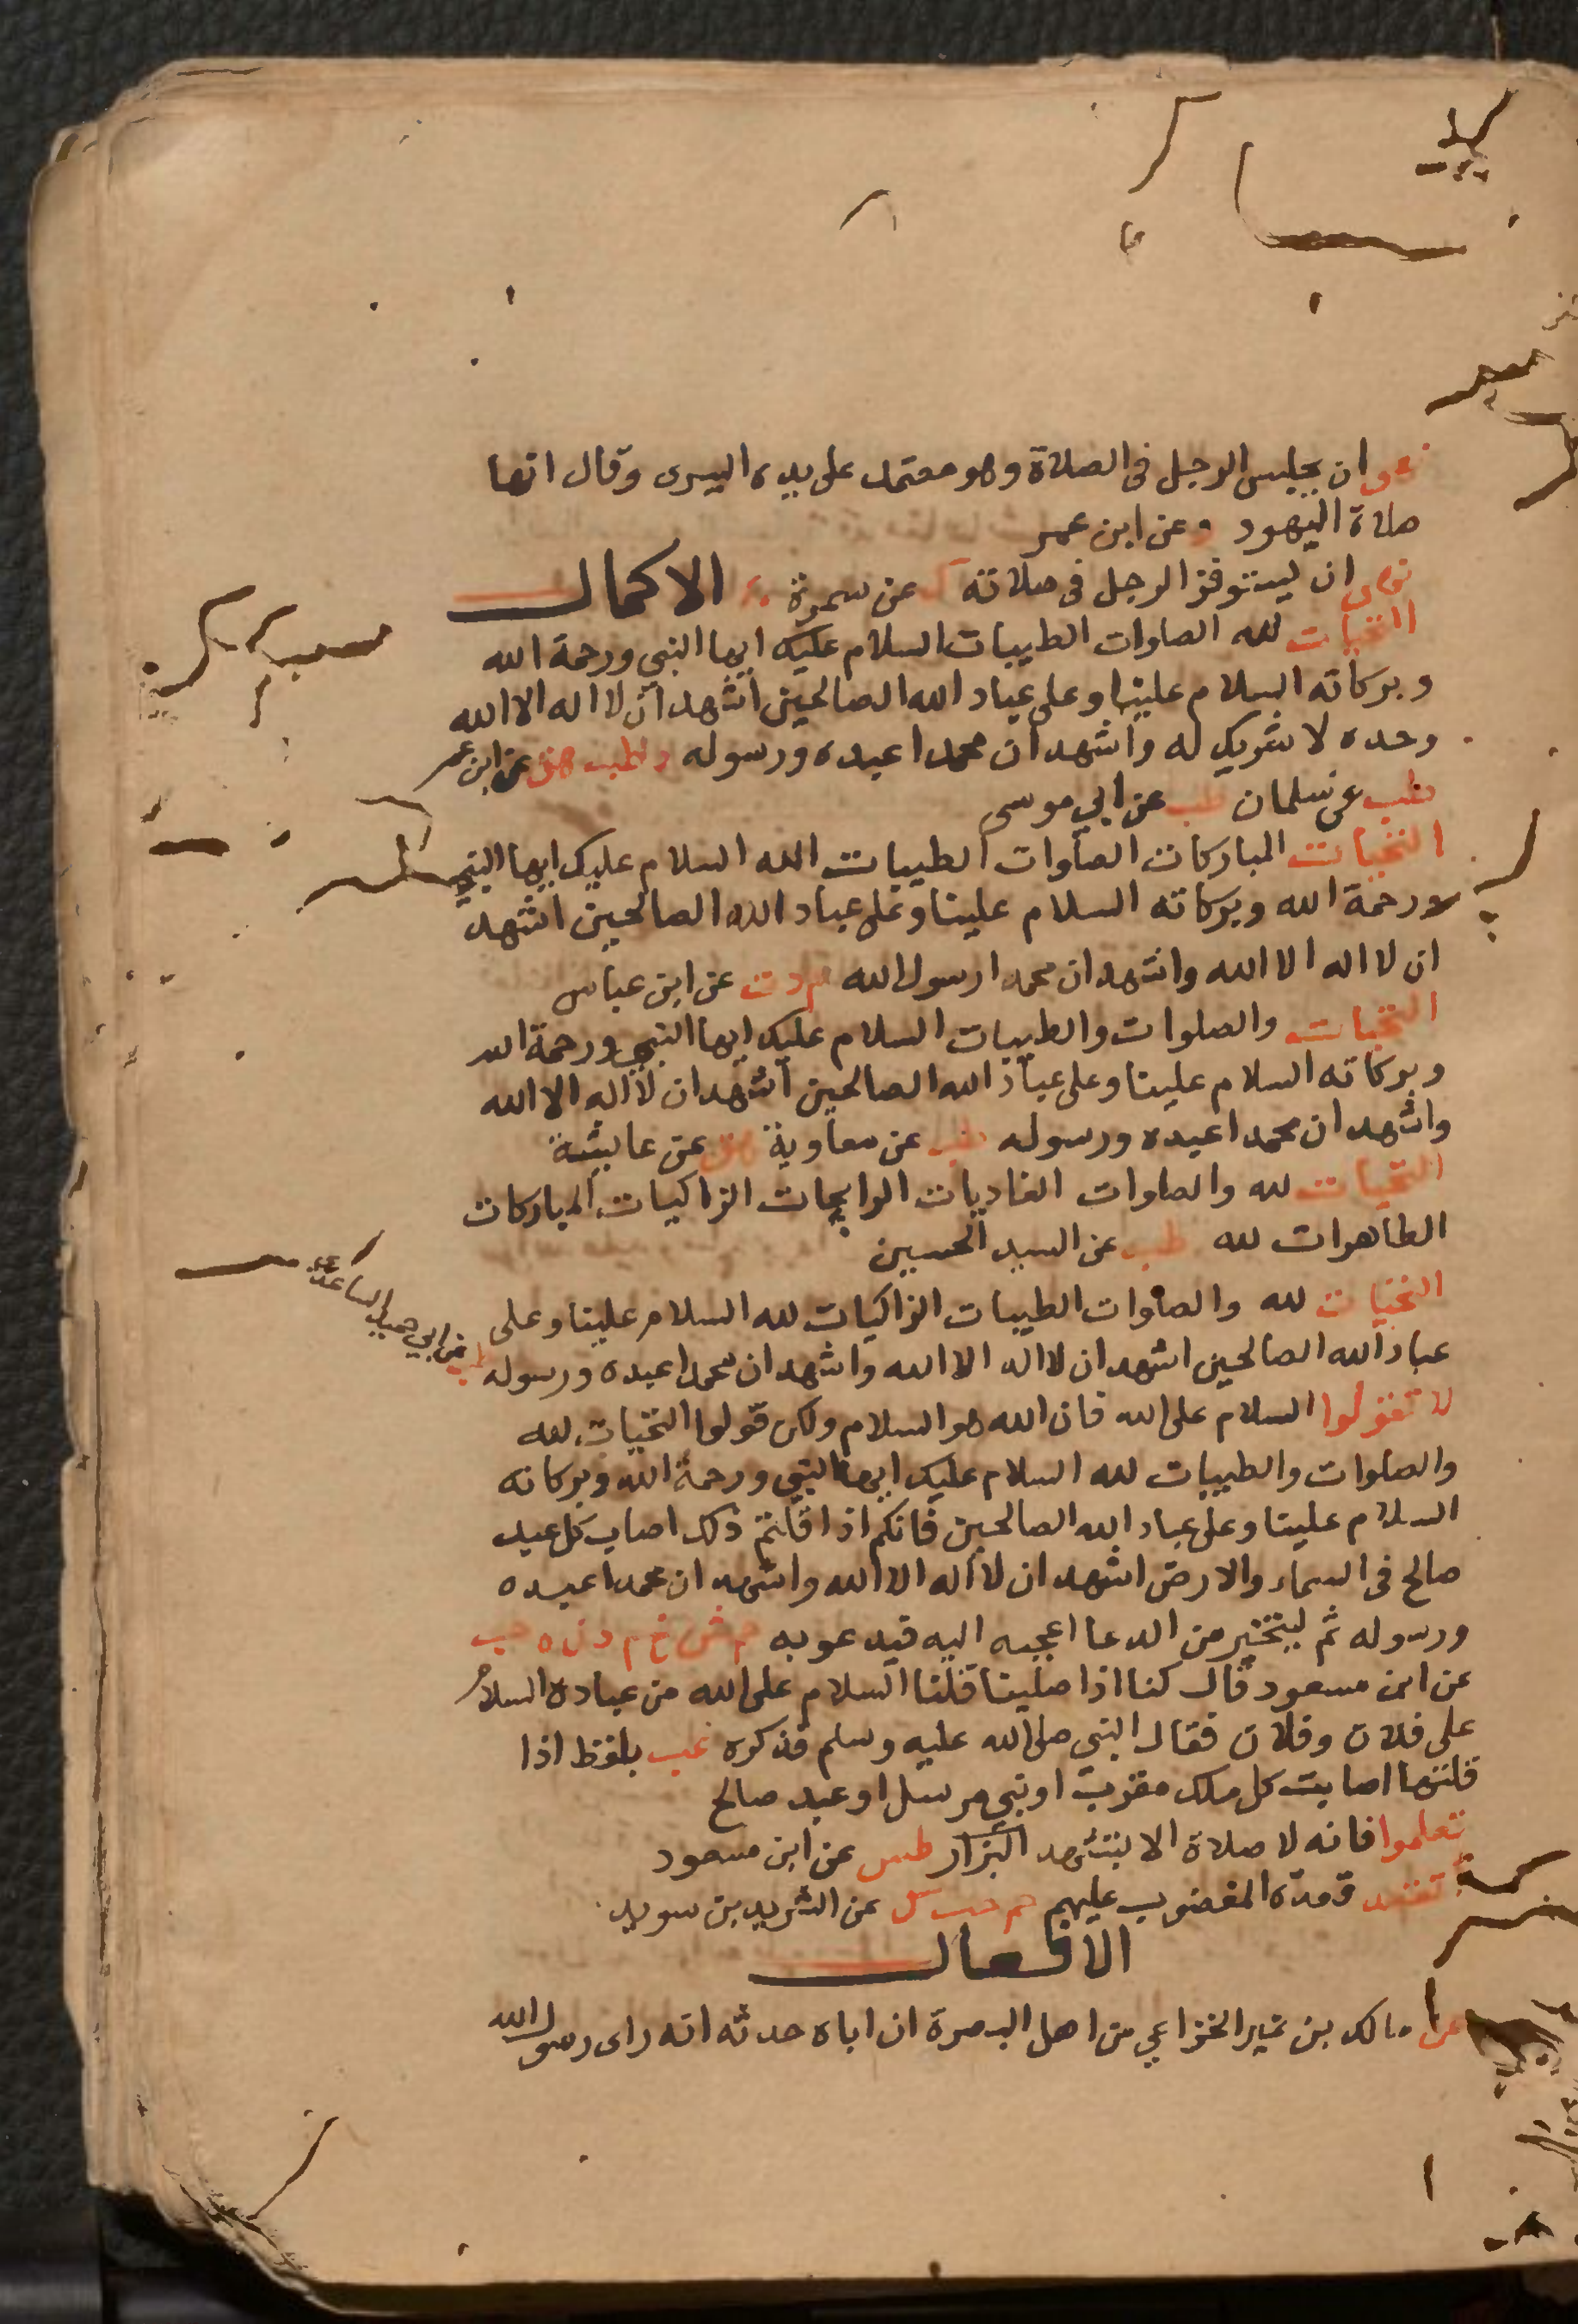 نهى ان يجلس الرجل فى الصلاة وهو معتمد على يده اليسرى وقال انها
صلاة اليهود وعن ابن عمر
نهى ان يستوفز الرجل فى صلاته ك عن سمرة الاكمال
التحيات لله الصلوات الطيبات السلام عليك ايها النبي ورحمة الله
وبركاته السلام علينا وعلى عباد الله الصالحين اشهد ان لا اله الا الله
وحده لا شريك له واشهد ان محمدا عبده ورسوله طب هق عن ابن عمر
طب عن سلمان طب عن ابي موسى
التحيات المباركات الصلوات الطيبات الله السلام عليك ايها النبي
ورحمة الله وبركاته السلام علينا وعلى عباد الله الصالحين اشهد
ان لا اله الا الله واشهد ان محمدا رسول الله م د ت عن ابن عباس
التحيات والصلوات والطيبات السلام عليك ايها النبي ورحمة الله
وبركاته السلام علينا وعلى عباد الله الصالحين اشهد ان لا اله الا الله
واشهد ان محمدا عبده ورسوله طب عن معاوية هق عن عايشة
التحيات لله والصلوات الغاديات الرايحات الزاكيات المباركات
الطاهرات لله طب عن السيد الحسين
التحيات لله والصلوات الطيبات الزاكيات لله السلام علينا وعلى
عباد الله الصالحين اشهد ان لا اله الا الله واشهد ان محمدا عبده ورسوله طب عن ابي حميد الساعدي
لا تقولوا السلام على الله فان الله هو السلام ولكن قولوا التحيات لله
والصلوات والطيبات لله السلام عليك ايها النبي ورحمة الله وبركاته
السلام علينا وعلى عباد الله الصالحين فانكم اذا قلتم ذلك اصاب كل عبد
صالح فى السماء والارض اشهد ان لا اله الا الله واشهد ان محمدا عبده
ورسوله ثم ليتخير من الدعا اعجبه اليه فيدعو به حم ش خ م د ن ه حب
عن ابن مسعود قال كنا اذا صلينا قلنا السلام على الله من عباده السلام
على فلان وفلان فقال النبي صلى الله عليه وسلم فذكره عب بلفظ اذا
قلتها اصابت كل ملك مقرب او نبي مرسل او عبد صالح
تعلموا فانه لا صلاة الا بتشهد البزار طس عن ابن مسعود
تقعد قعدة المغضوب عليهم حم حب ك عن الشريد بن سويد
الافعال
عن مالك بن نمير الخزاعي من اهل البصرة ان اباه حدثه انه راى رسول الله